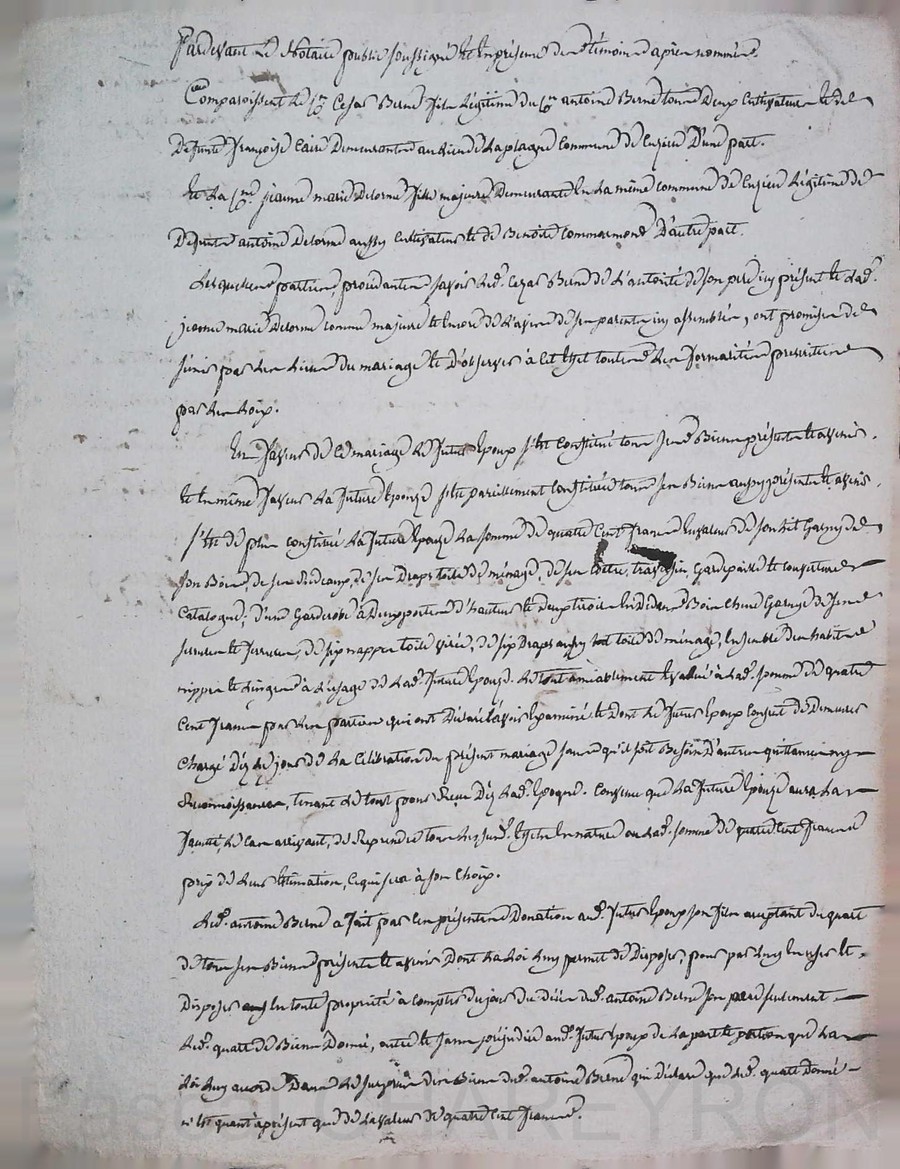 Pardevant Le Notaire public soussigné Et En présence des témoins apres nommés.
Comparoissent Le Cen Cesar Berne fils Légitime du Cen antoine Berne tous Deux Cultivateurs Et de
Défunte françoise Caire Demeurants au Lieu de Laplagne Commune de Luzieu D'une part.
Et La Cene jeanne marie Delorme fille majeure Demeurante En La même Commune De Luzieu Légitime de
Défunt antoine Delorme aussy Cultivateur Et de Benoite Commarmond D'autre part.
Lesquelles parties, procédantes savoir Led. Cezar Berne de L'autorité de son pere icy présent Et Lad.
jeanne marie Delorme comme majeure Et Encore de L'avis de ses parents icy assemblés, ont promis de
s'unir par Les Liens du mariage Et D'observer à Cet Effet toutes Les formalités prescrites
par Les Loix.
En faveur de Ce mariage Le futur Epoux s'est Constitué tous ses Biens présents Et avenir.
Et En même faveur La future Epouse s'est pareillement Constituée tous ses Biens aussy présents Et avenir.
s'est de plus constitué La future Epouse La somme de quatre Cent francs En valeur de son Lit Garny de
son Bois, de ses Rideaux, de ses Draps toile de ménage, de son traversin, Gardepaille Et couverture
Catalogne; d'une Garderobe à Deux portes D'hauteur Et deux tiroirs Bois Chene Garnye de ses
serrures Et ferrures, de six nappes toile de six Draps aussy toile de ménage, Ensemble des habits
nippes Et Linges à L'usage de Lad. future Epouse. Le tout amiablement Evalué à Lad. somme de quatre
Cent francs par Les parties qui ont Déclaré L'avoir Examiné Et Dont Le futur Epoux Consent De Demeurer
Chargé Dèz Le jour de La Célébration du présent mariage sans qu'il soit Besoin D'autres quittances ny
Reconnoissances, tenant Le tout pour Reçu Dèz Lad. Epoque. Convenu que La future Epouse aura La
faculté, Le Cas arrivant, de Reprendre tous Les susd. Effets En nature ou Lad. somme de quatre Cent francs
prix de Leur Estimation, Ce qui sera à son Choix.
Led. antoine Berne a fait par Ces présentes Donation aud. futur Epoux son fils acceptant du quart
de tous ses Biens présents Et avenir Dont La Loi Luy permet de Disposer, pour par Luy En user Et
Disposer En toute propriété à compter du jour du décès dud. antoine Berne son pere seulement
Led. quart de Biens Donné, outre Et sans préjudice aud. futur Epoux de La part Et portion que La
Loi Luy accorde Dans Le surplus des Biens dud. antoine Berne qui Déclare que Led. quart donné
n'Est quant à présent que de La valeur de quatre Cent francs.